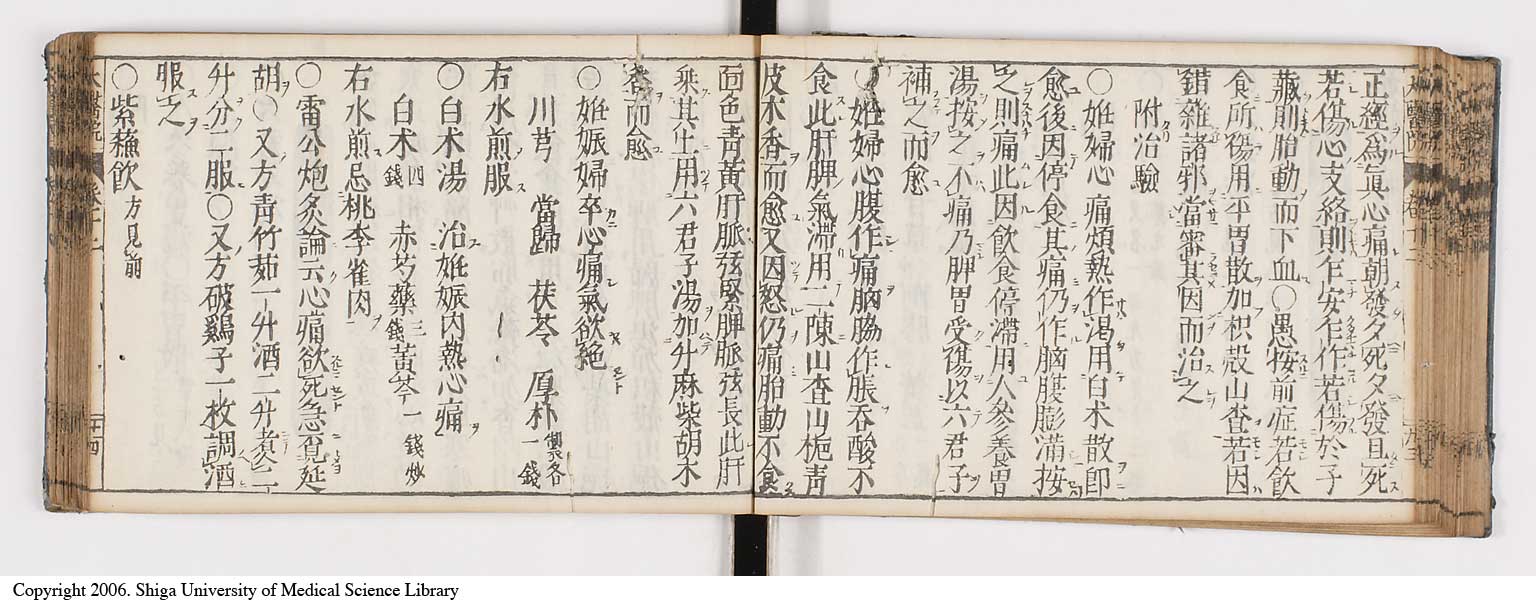 正經為眞心痛朝發夕死夕發旦死
若傷心支絡則乍安乍作若傷於子
藏則胎動而下血○愚按前症若飲
食所傷用平胃散加枳殻山査若因
錯雜諸邪當審其因而治之
附治驗
○姙婦心痛煩熱作渴用白术散即
愈後因停食其痛仍作腦腹膨滿按
之則痛此因飲食停滯用人參養胃
湯按之不痛乃脾胃受傷以六君子
補之而愈
○姙婦心腹作痛腦脇作脹吞酸不
食此肝脾氣滯用二陳山査山梔靑
皮木香而愈又因怒仍痛胎動不食
面色靑黃肝脈弦緊脾脈弦長此肝
乘其土用六君子湯加升麻柴胡木
香而愈
○姙娠婦卒心痛氣欲絶
川芎 當歸 茯苓 厚朴製各一錢
右水煎服
○白术湯 治姙娠内熱心痛
白术四錢 赤芍藥三錢 黃芩一錢炒
右水煎忌桃李雀肉
○雷公炮炙論云心痛欲死急覓延
胡○又方靑竹茹一升酒二升煑
升分二服○又方破鷄子一枚調酒
服之
○紫蘓飲方見前
Copyright 2006. Shiga University of Medical Science Library